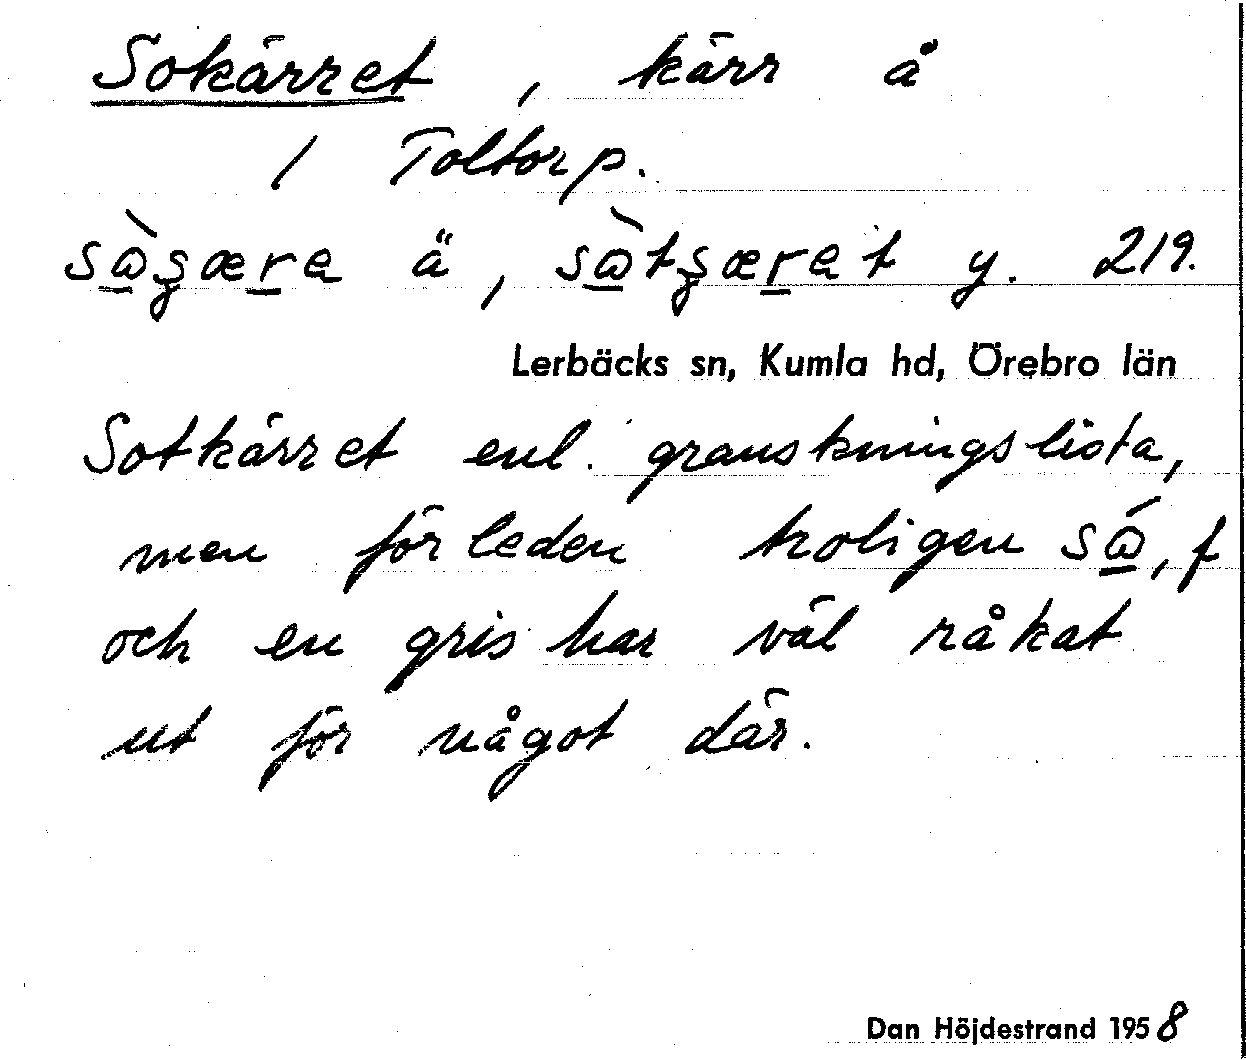 Sokärret, kärr å
/ Toltorp.
sὼʂærɐ ä, sὼtʂærɐt y. 219.
Lerbäcks sn, Kumla hd, Örebro län
Sotkärret enl. granskningslista,
men förleden troligen sώ, f
och en gris har väl råkat
ut för något där.
Dan Höjdestrand 1958